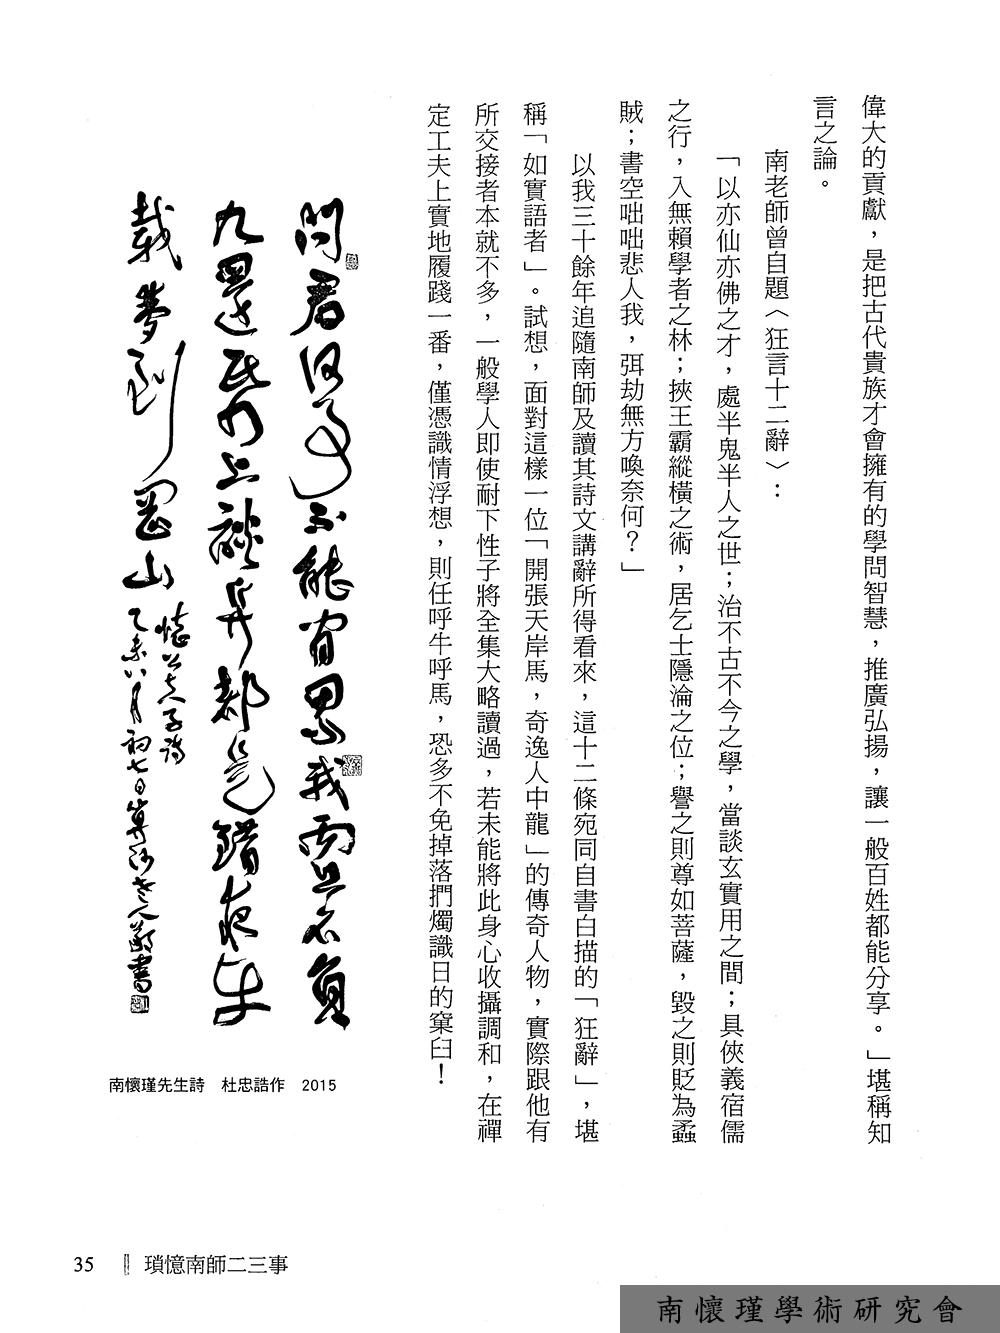 偉大的貢獻，是把古代貴族才會擁有的學問智慧，推廣弘揚，讓一般百姓都能分享。」堪稱知
言之論。
南老師曾自題〈狂言十二辭〉：
「以亦仙亦佛之才，處半鬼半人之世；治不古不今之學，當談玄實用之間；具俠義宿儒
之行，入無賴學者之林；挾王霸縱橫之術，居乞士隱淪之位；譽之則尊如菩薩，毀之則貶為蟊
賊；書空咄咄悲人我，弭劫無方喚奈何？」
以我三十餘年追隨南師及讀其詩文講辭所得看來，這十二條宛同自書白描的「狂辭」，堪
稱「如實語者」。試想，面對這樣一位「開張天岸馬，奇逸人中龍」的傳奇人物，實際跟他有
所交接者本就不多，一般學人即使耐下性子將全集大略讀過，若未能將此身心收攝調和，在禪
定工夫上實地履踐一番，僅憑識情浮想，則任呼牛呼馬，恐多不免掉落捫燭識日的窠臼！
問君何事不能窮思我西山名負
九還民力上談兵都是錯夜
載夢到崑山
懷公夫子詩
乙未八月初七日 書
南懷瑾先生詩　杜忠誥作　2015
35 ‖ 瑣憶南師二三事
南懷瑾學術研究會